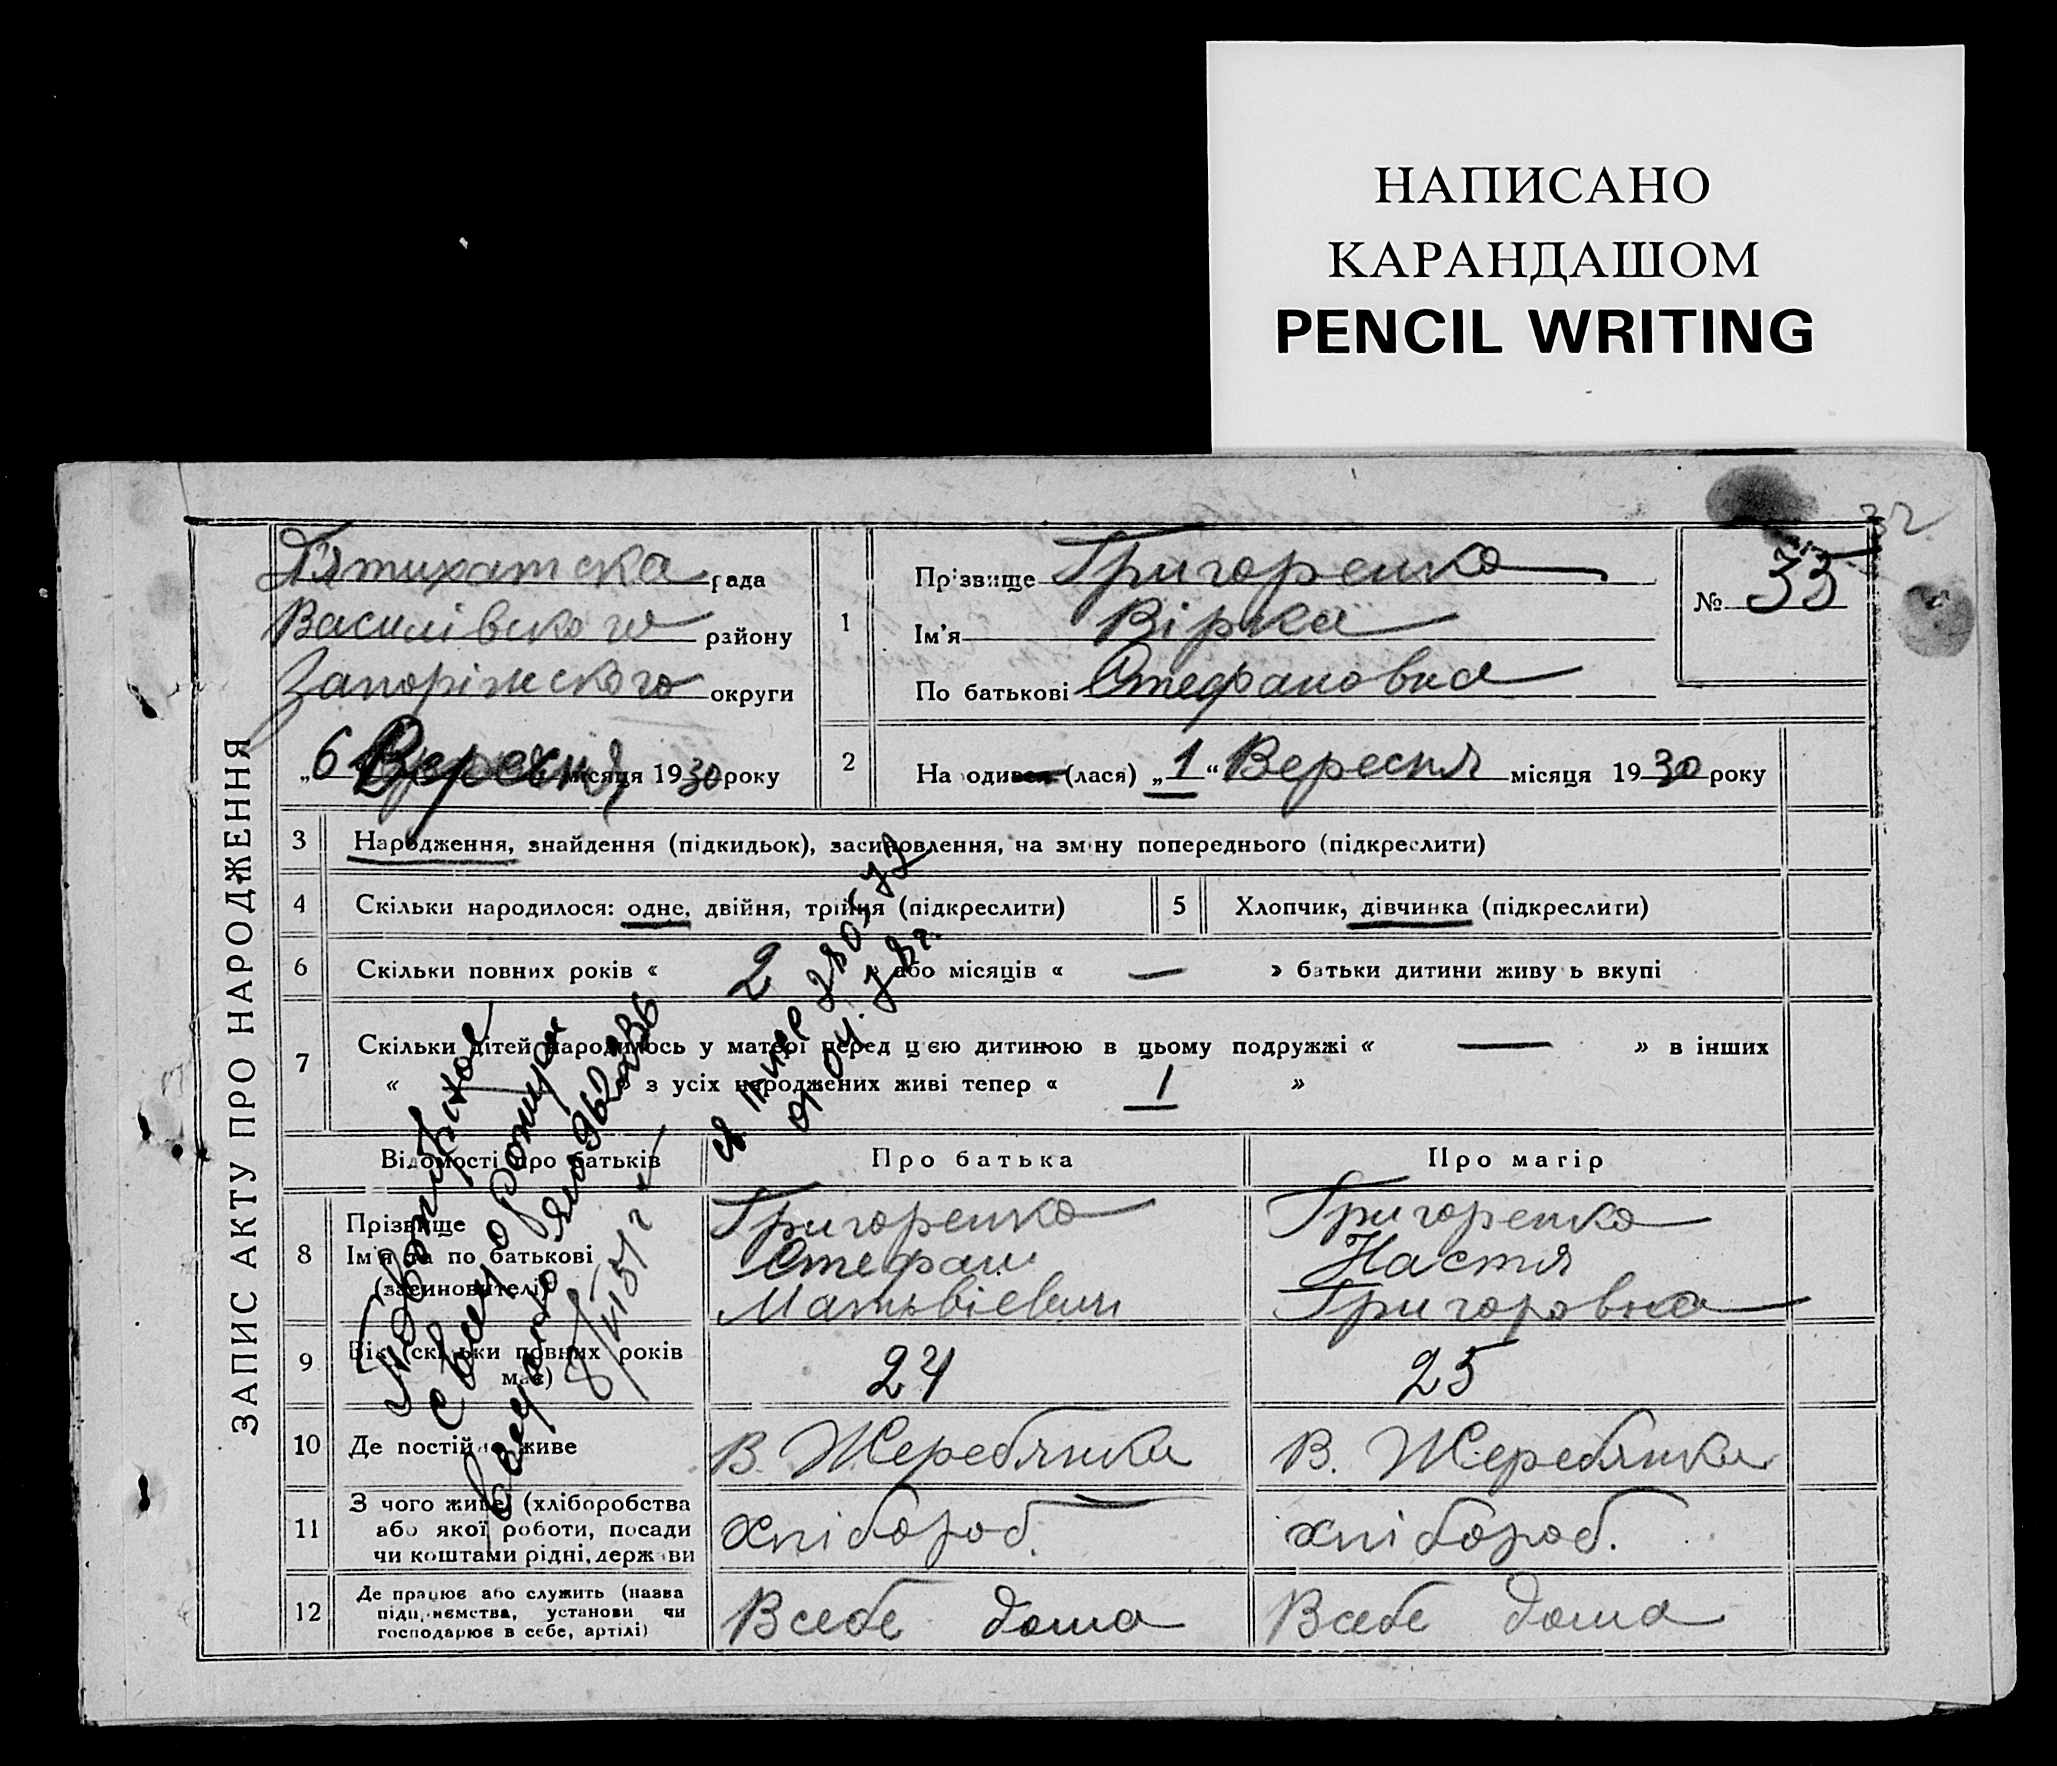 НАПИСАНО
КАРАНДАШОМ
PENCIL WRITING
32
ЗАПИС АКТУ ПРО НАРОДЖЕННЯ
П'ятихатска рада
Василівского району
Запоріжского округи
„6 Вересня місяця 1930 року
1
Прізвище Григоренко
Ім'я Вірка
По батькові Стефановна
№ 33
2 На одився (лася) „1“ Вересня місяця 1930 року
3 Народження, знайдення (підкидьок), засиновлення, на зміну попереднього (підкреслити)
4 Скільки народилося: одне, двійня, трійня (підкреслити) 5 Хлопчик, дівчинка (підкреслити)
6 Скільки повних років « 2 » або місяців « — » батьки дитини живуть вкупі
7 Скільки дітей народилось у матері перед цією дитиною в цьому подружжі « — » в інших
« — » з усіх народжених живі тепер « 1 »
Повторное
свид о рожден
выдано ЯЮ 962236
8/VI 51 г
280573
04. 78 г.
Відомості про батьків Про батька Про матір
8 Прізвище
Ім'я та по батькові
(засиновителі)
Григоренко
Стефан
Матьвіевич
Григоренко
Настя
Григоровна
9 Вік (скільки повних років
має)
24 25
10 Де постійно живе В. Жеребянки В. Жеребянки
11 З чого живе (хліборобства
або якої роботи, посади
чи коштами рідні, держави
хлібороб. хлібороб.
12 Де працює або служить (назва
підприємства, установи чи
господарює в себе, артілі)
В себе дома В себе дома